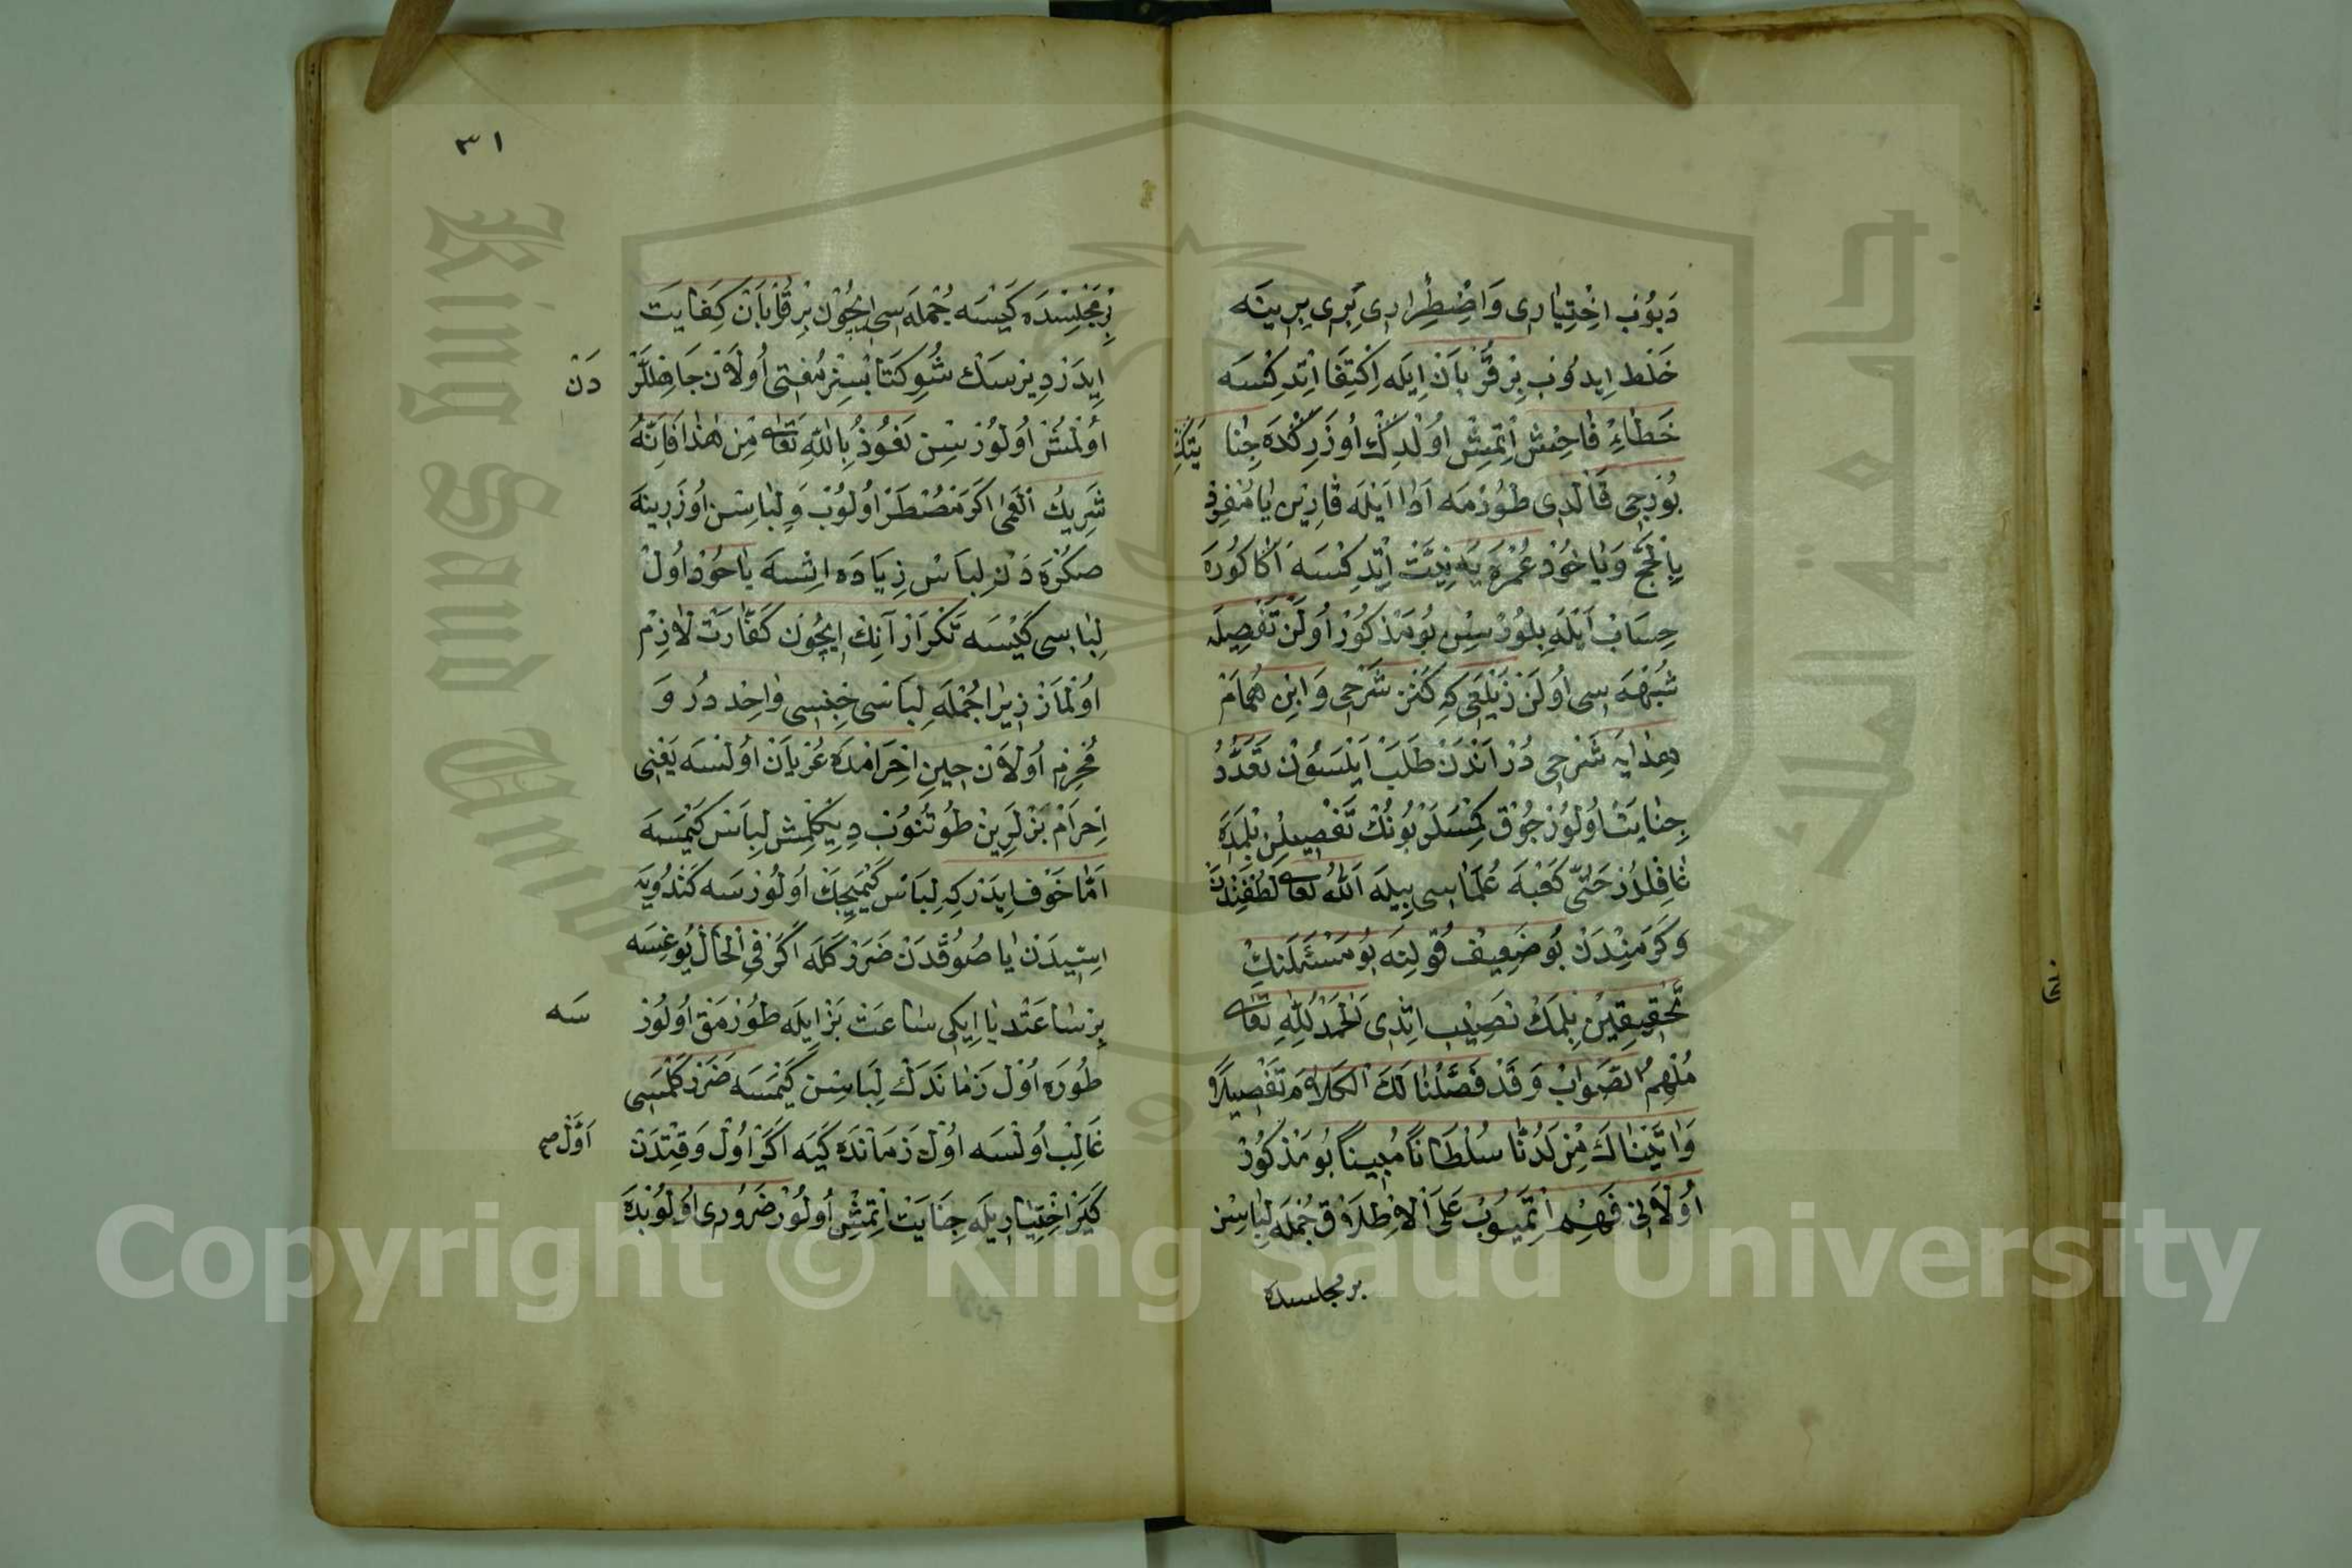 ديوب اختياری و اضطراری بری برينه
خلط ايدوب بر قربان ايله اكتفا اتد كسه
خطاء فاحش اتمش اولدك اوزركده جنا يتك
بورجی قالدی طورمه ادا ايله قارين يا مفرد
بالحج و يا خود عمره يه نيت اتد كسه اكا كوره
حساب ايله بلورسن بو مذكور اولن تفصيله
شبهه سی اولن زيلعی كه كنز شرحی و ابن همام
هدايه شرحی در اندن طلب ايلسون تعدد
جنايت اولور جوق كمسلر بونك تفصيلن بلمده
غافلدر حتی كعبه علماسی بيله الله تعالی لطفندن
و كرمندن بو ضعيف قولنه بو مسئلنك
تحقيقين بلمك نصيب اتدی الحمد لله تعالی
ملهم الصواب و قد فصلنا لك الكلام تفصيلا
و اتيناك من لدنا سلطانا مبينا بو مذكور
اولانی فهم اتميوب علی الاطلاق جمله لباسن
بر مجلسده
٣١
بر مجلسده كيسه جمله سی ايچون بر قربان كفايت
ايدر ديرسك شو كتابسز مفتی اولان جاهللردن
اولمش اولورسن نعوذ بالله تعالی من هذا فانه
شريك العمی اكر مضطر اولوب و لباسن اوزرينه
صكره دن لباس زياده اتسه ياخود اول
لباسی كيسه تكرار آنك ايچون كفارت لازم
اولماز زيرا جمله لباسی جنسی واحد در و
محرم اولان حين احرامده عريان اولسه يعنی
احرام بزلرين طوتنوب ديكلمش لباس كيمسه
اما خوف ايدر كه لباس كيميجك اولورسه كندويه
استيدن يا صوقدن ضرر كله اكر فی الحال يوغسه
بر ساعتد يا ايكی ساعت بز ايله طورمق اولورسه
طوره اول زماندك لباسن كيمسه ضرر كلمسی
غالب اولسه اول زمانده كيه اكر اول وقتدن اول صح
كير اختياريله جنايت اتمش اولور ضروری اولونده